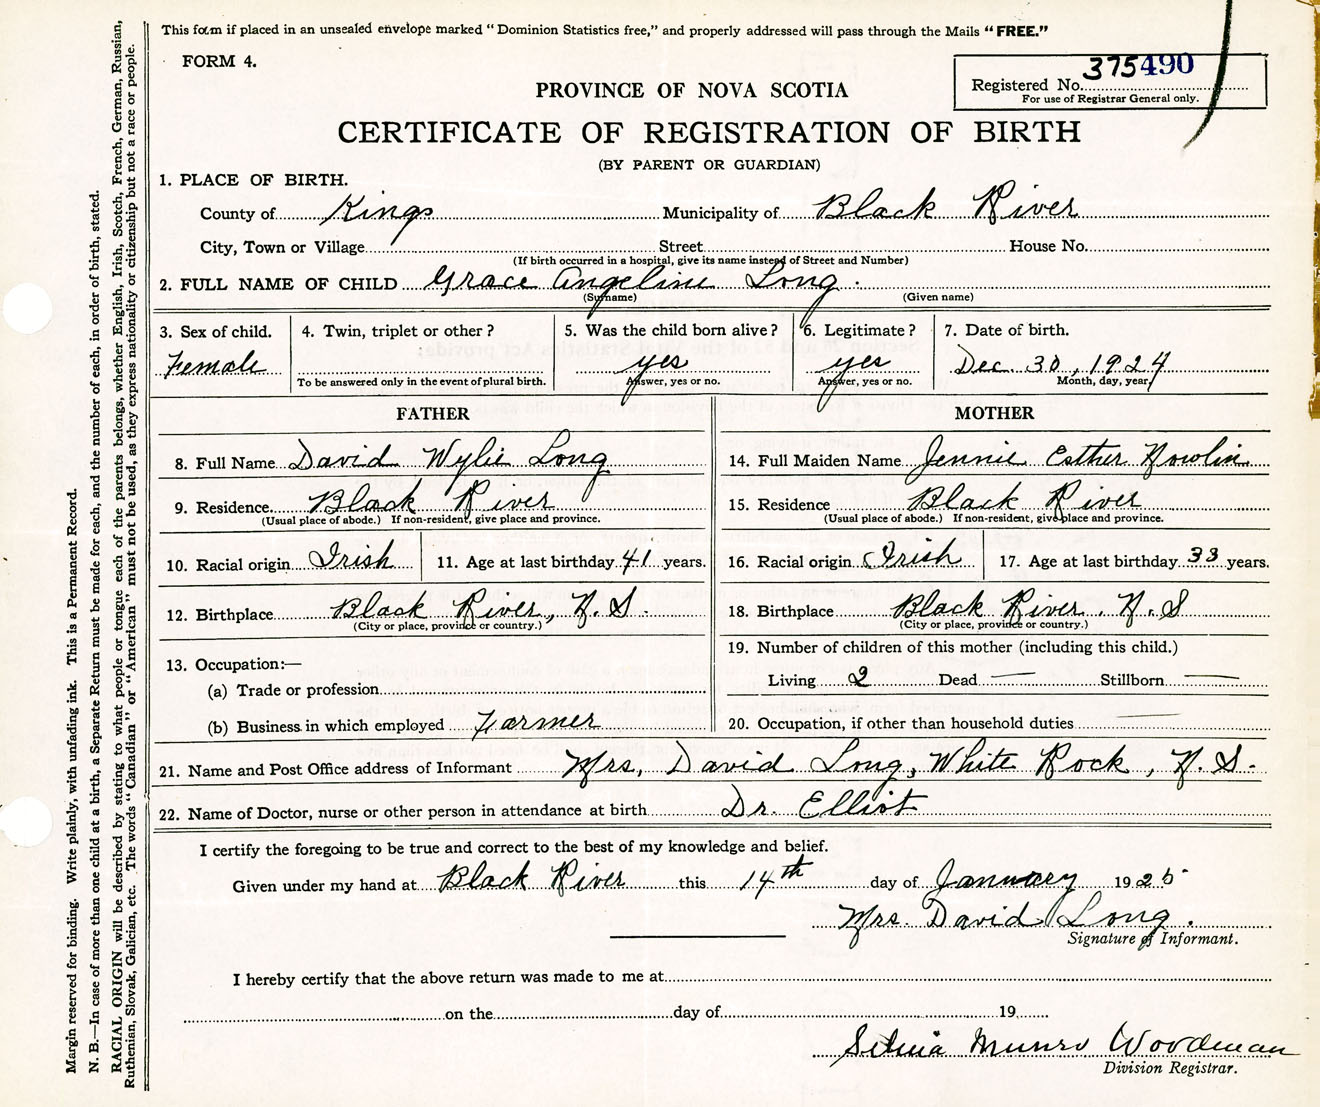 This form if placed in an unsealed envelope marked "Dominion Statistics free," and properly addressed will pass through the Mails "FREE."
FORM 4.
Registered No. 375490
For use of Registrar General only.
PROVINCE OF NOVA SCOTIA
CERTIFICATE OF REGISTRATION OF BIRTH
(BY PARENT OR GUARDIAN)
1. PLACE OF BIRTH.
County of Kings Municipality of Black River
City, Town or Village Street House No.
(If birth occurred in a hospital, give its name instead of Street and Number)
2. FULL NAME OF CHILD Grace Angeline Long.
(Surname) (Given name)
3. Sex of child. 4. Twin, triplet or other? 5. Was the child born alive? 6. Legitimate? 7. Date of birth.
Female yes yes Dec. 30, 1924
To be answered only in the event of plural birth. Answer, yes or no. Answer, yes or no. Month, day, year.
FATHER
8. Full Name David Wylie Long
9. Residence Black River
(Usual place of abode.) If non-resident, give place and province.
10. Racial origin Irish 11. Age at last birthday 41 years.
12. Birthplace Black River, N. S.
(City or place, province or country.)
13. Occupation:—
(a) Trade or profession
(b) Business in which employed Farmer
MOTHER
14. Full Maiden Name Jennie Esther Nowlin
15. Residence Black River
(Usual place of abode.) If non-resident, give place and province.
16. Racial origin Irish 17. Age at last birthday 33 years.
18. Birthplace Black River. N. S
(City or place, province or country.)
19. Number of children of this mother (including this child.)
Living 2 Dead — Stillborn —
20. Occupation, if other than household duties —
21. Name and Post Office address of Informant Mrs. David Long, White Rock, N. S.
22. Name of Doctor, nurse or other person in attendance at birth Dr. Elliot
I certify the foregoing to be true and correct to the best of my knowledge and belief.
Given under my hand at Black River this 14th day of January 1925
Mrs. David Long.
Signature of Informant.
I hereby certify that the above return was made to me at
on the day of 19
Munro Woodman
Division Registrar.
Margin reserved for binding. Write plainly, with unfading ink. This is a Permanent Record.
N. B.—In case of more than one child at a birth, a Separate Return must be made for each, and the number of each, in order of birth, stated.
RACIAL ORIGIN will be described by stating to what people or tongue each of the parents belongs, whether English, Irish, Scotch, French, German, Russian,
Ruthenian, Slovak, Galician, etc. The words "Canadian" or "American" must not be used, as they express nationality or citizenship but not a race or people.